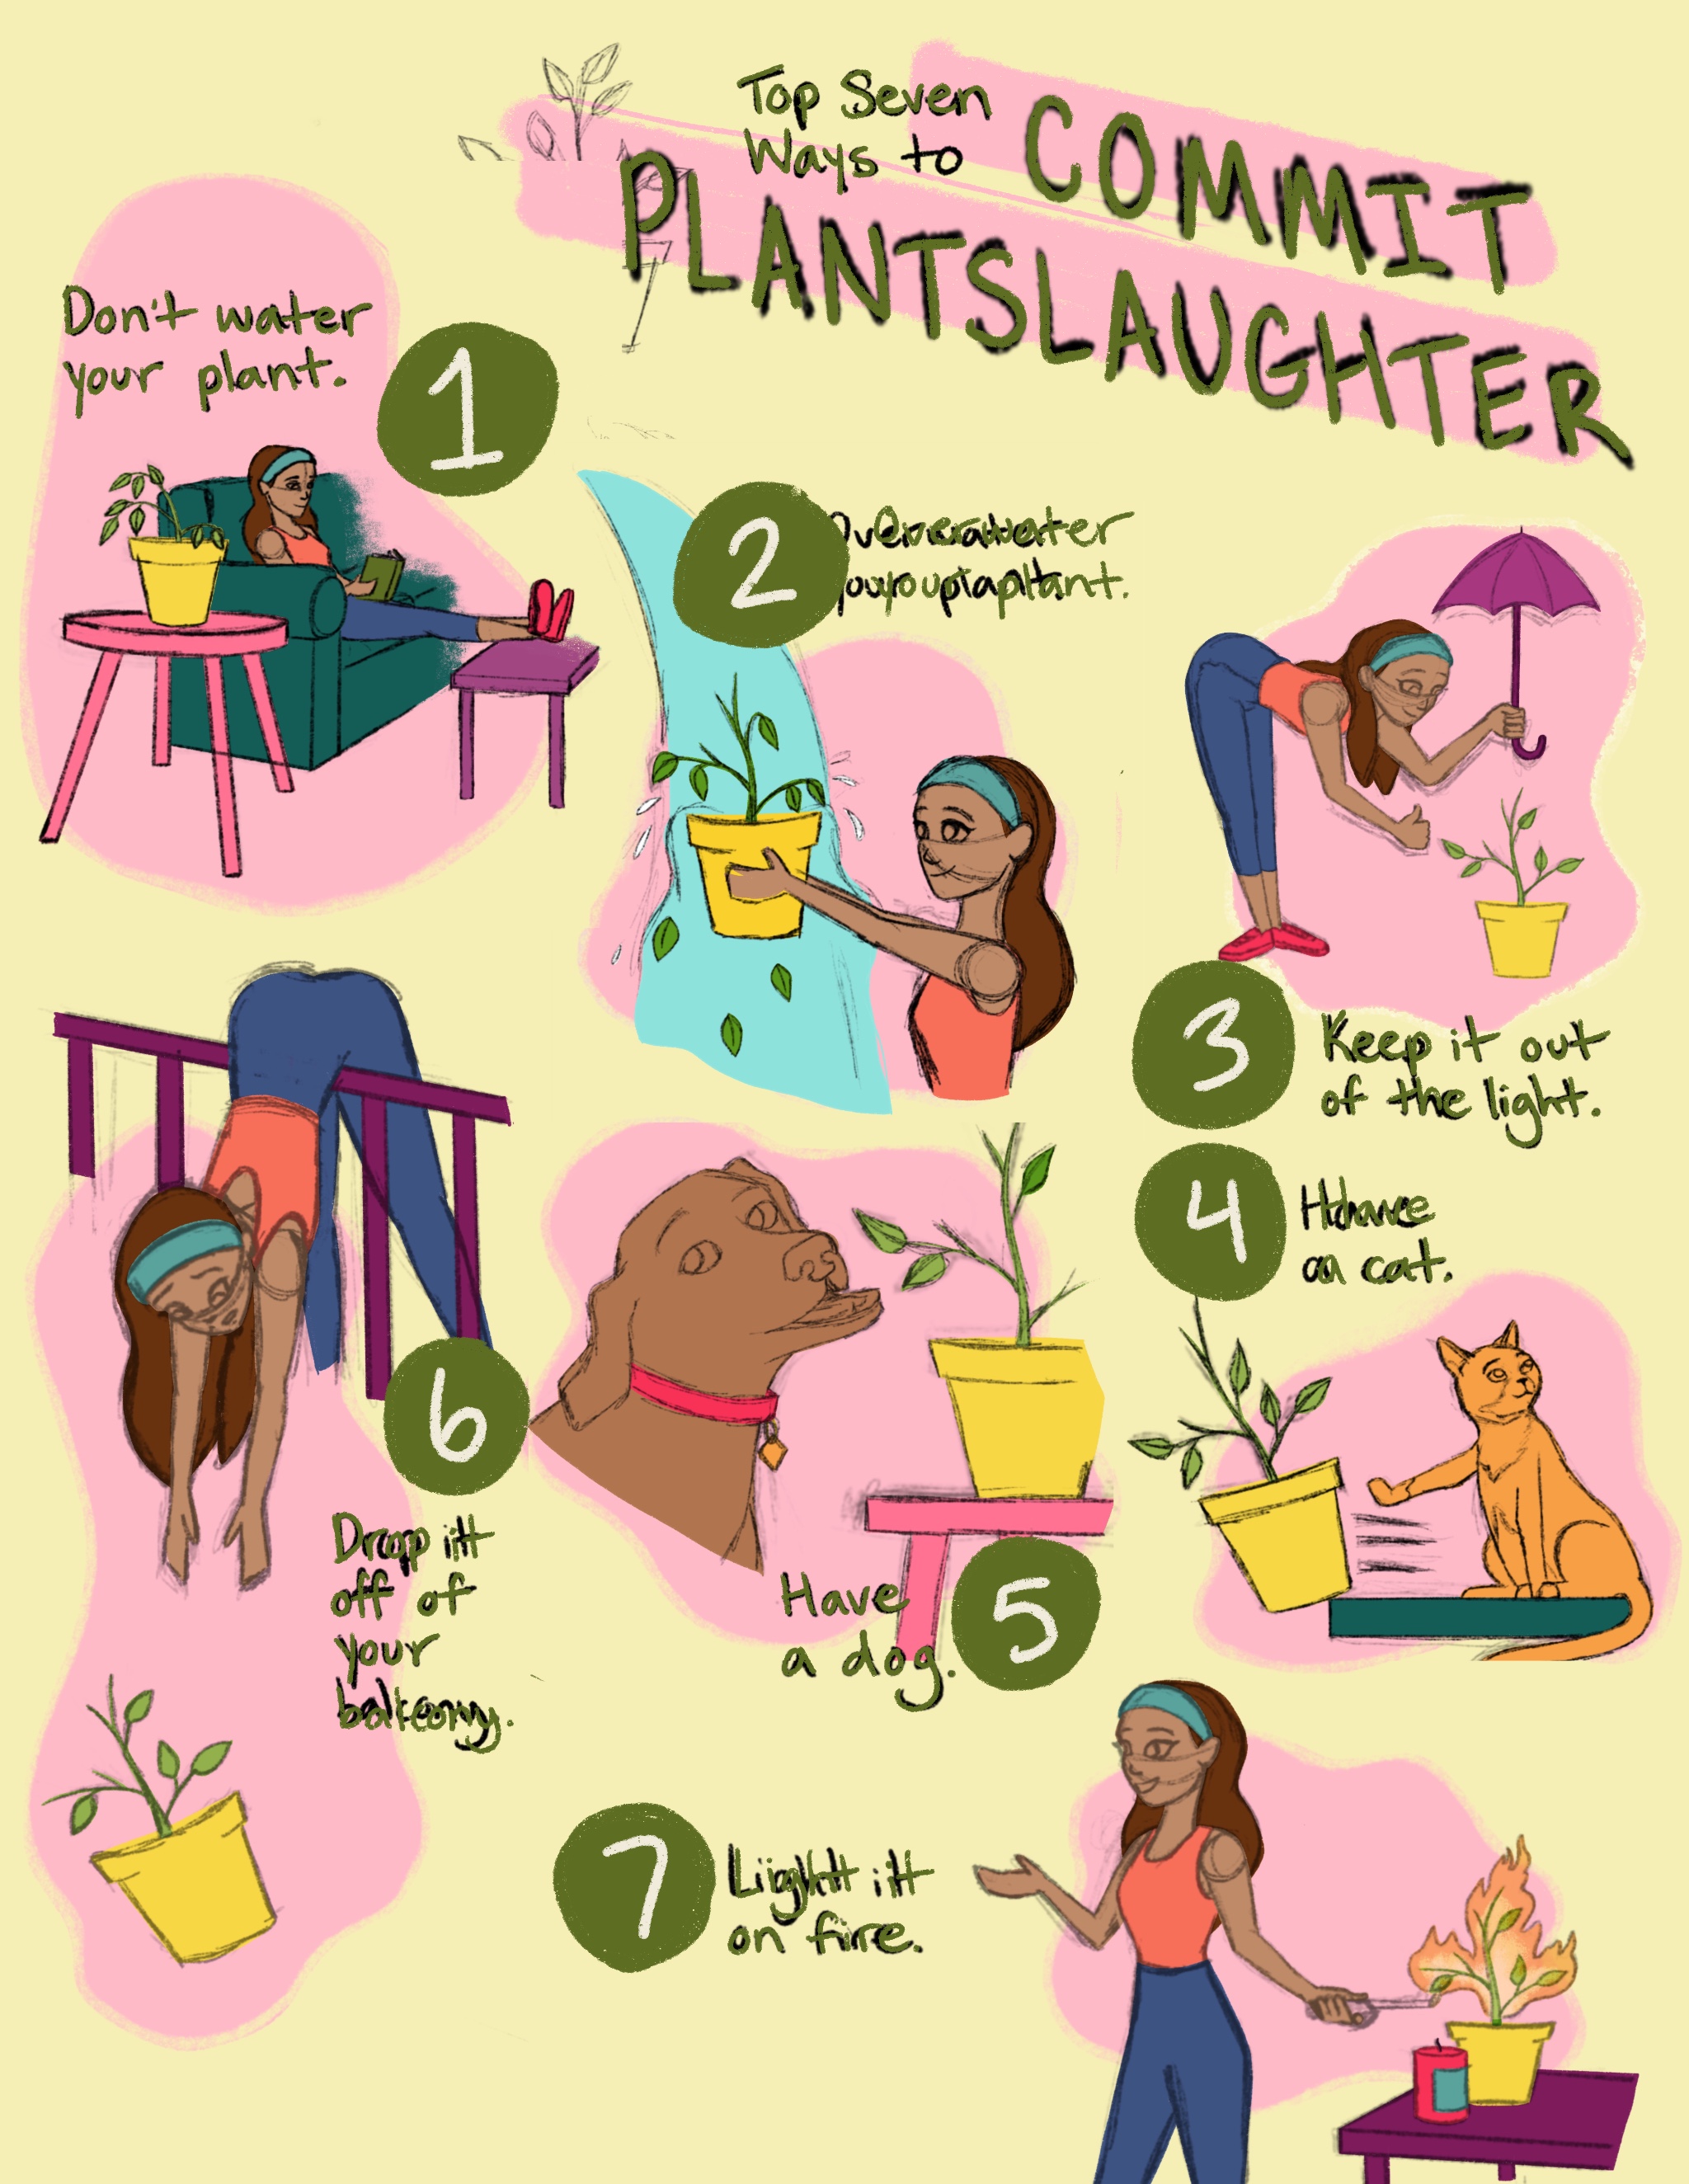 Top Seven
Ways to COMMIT
PLANTSLAUGHTER
1
Don't water
your plant.
2
Overwater
your plant.
3
Keep it out
of the light.
4
Have
a cat.
5
Have
a dog.
6
Drop it
off of
your
balcony.
7
Light it
on fire.